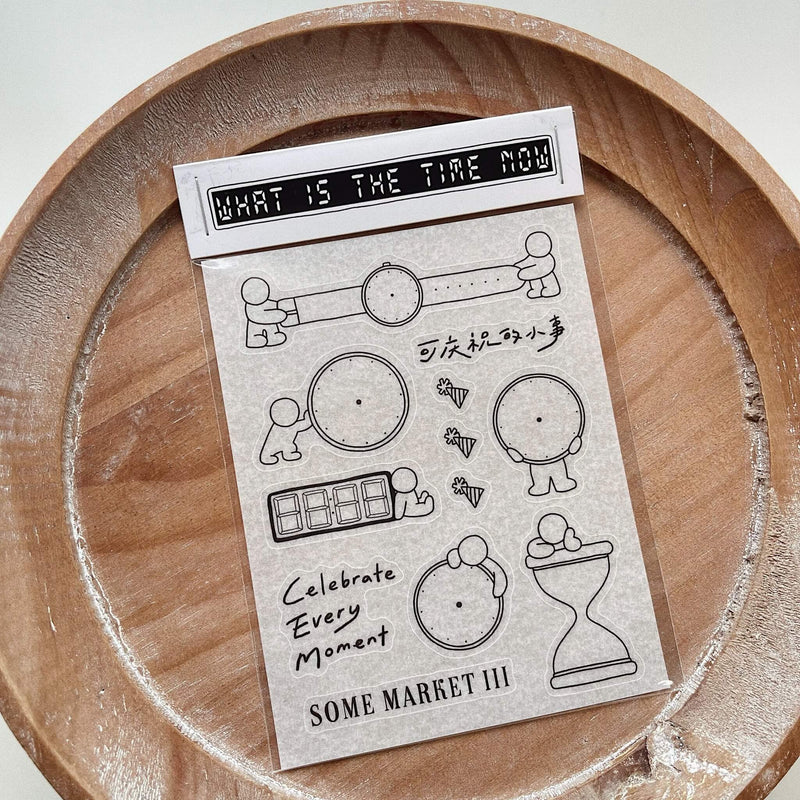 WHAT IS THE TIME NOW
可庆祝的小事
88:88
Celebrate
Every
Moment
SOME MARKET III